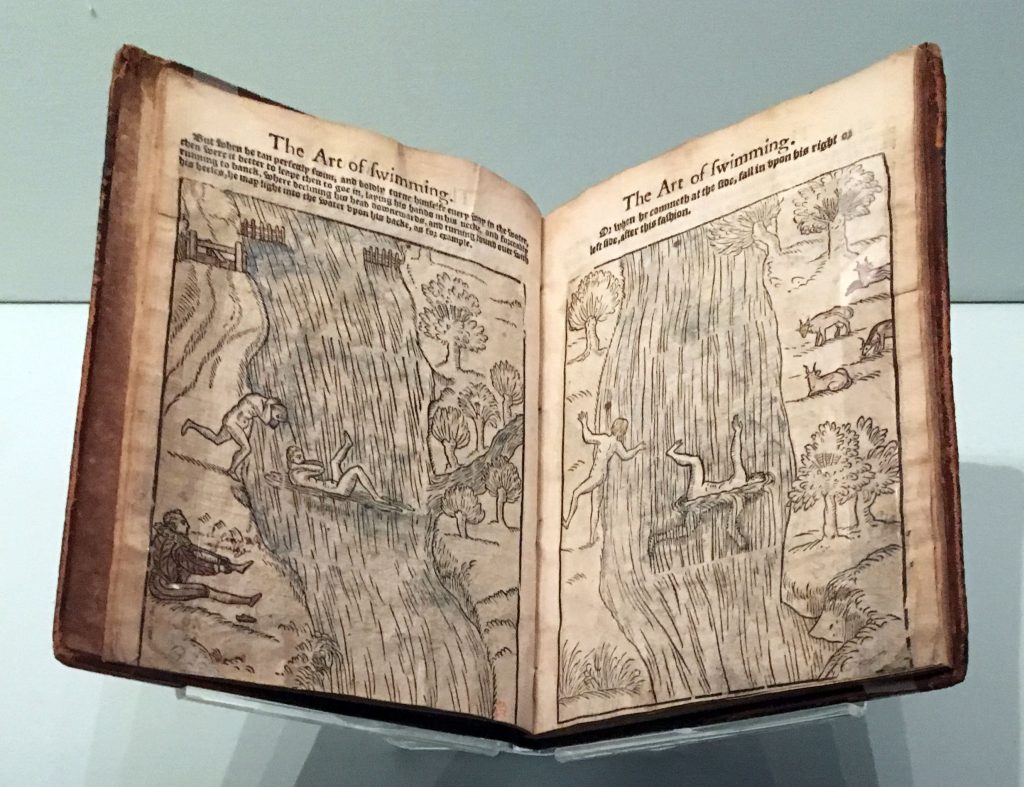 The Art of ſwimming.
But when he can perfectly ſwim, and boldly turne himſelfe euery way in the water,
then were it better to leape then to goe in, laying his hands in his necke, and forceably
running to banck, where declining his head downewards, and turning round ouer with
his heeles, he may light into the water vpon his backe, as for example.
The Art of ſwimming.
Or when he commeth at the ſide, fall in vpon his right or
left ſide, after this faſhion.